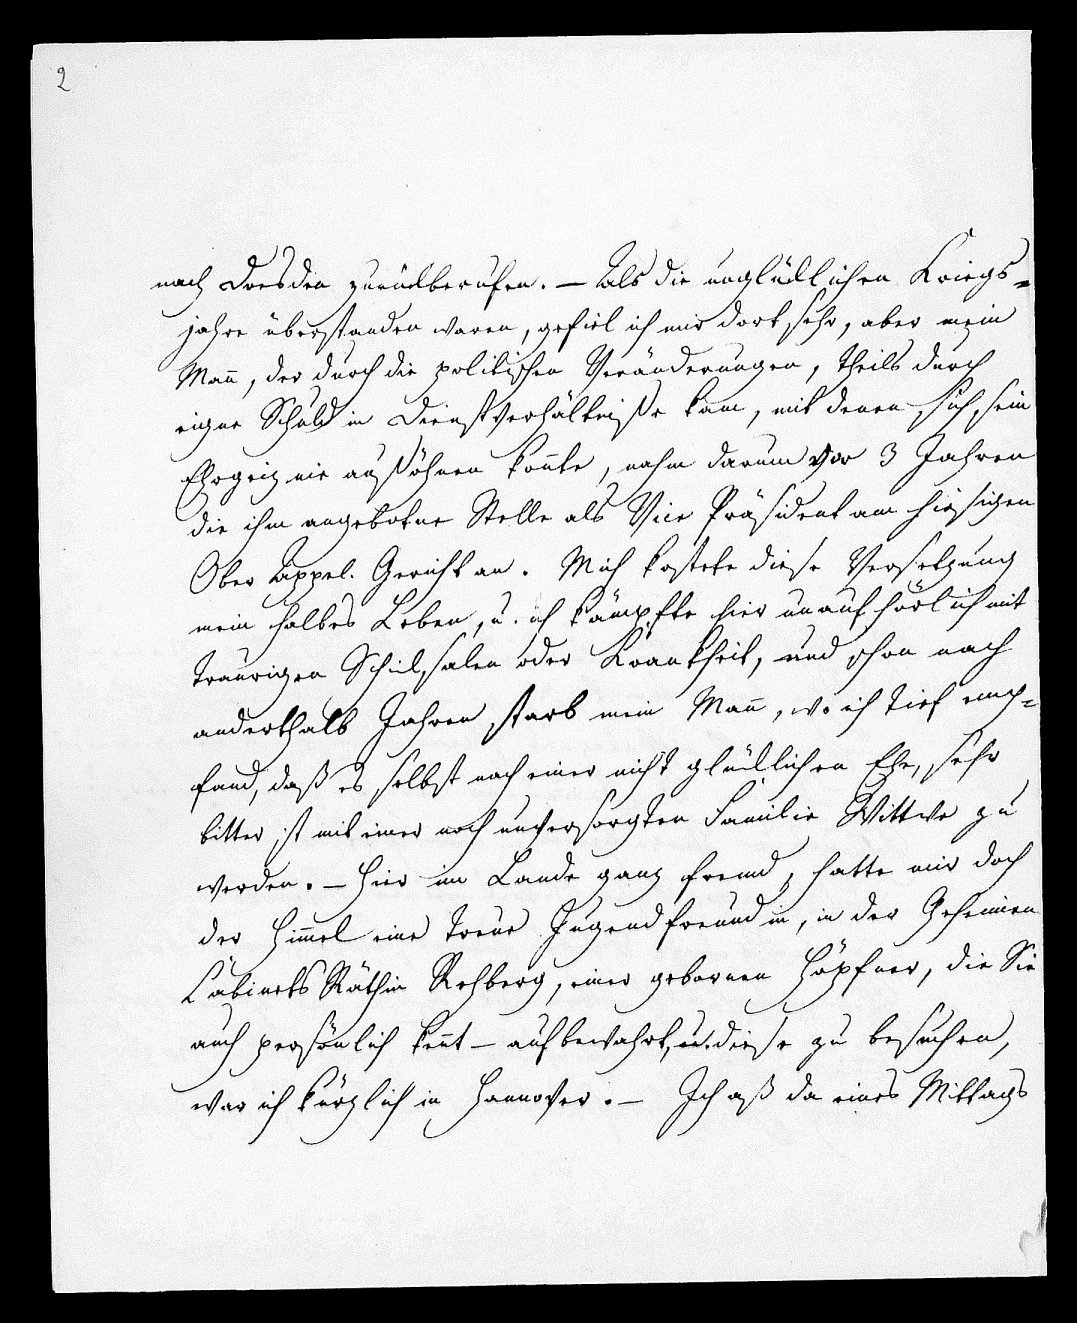 2
nach Dresden zurückberufen. – Als die unglücklichen Kriegs-
jahre überstanden waren, gefiel ich mir dort sehr, aber mein
Mañ, der durch die politischen Veränderungen, theils durch
eigne Schuld in Dienstverhältniße kam, mit denen sich sein
Ehrgeiz nie aussöhnen koñte, nahm darum vor 3 Jahren
die ihm angebotne Stelle als Vice Präsident am hiesigen
Ober Appel. Gericht an. Mich kostete diese Versetzung
mein halbes Leben, u. ich kämpfte hier unaufhörlich mit
traurigen Schicksalen oder Krankheit, und schon nach
anderthalb Jahren starb mein Mañ, wo ich tief emp-
fand, daß es selbst nach einer nicht glücklichen Ehe, sehr
bitter ist mit einer noch unversorgten Familie Wittwe zu
werden. – Hier im Lande ganz fremd, hatte mir doch
der Him̃el eine treue Jugendfreundin, in der Geheimen
Cabinets Räthin Rehberg, einer gebornen Höpfner, die Sie
auch persönlich keñt – aufbewahrt, u. diese zu besuchen,
war ich kürzlich in Hannover. – Ich aß da eines Mittags